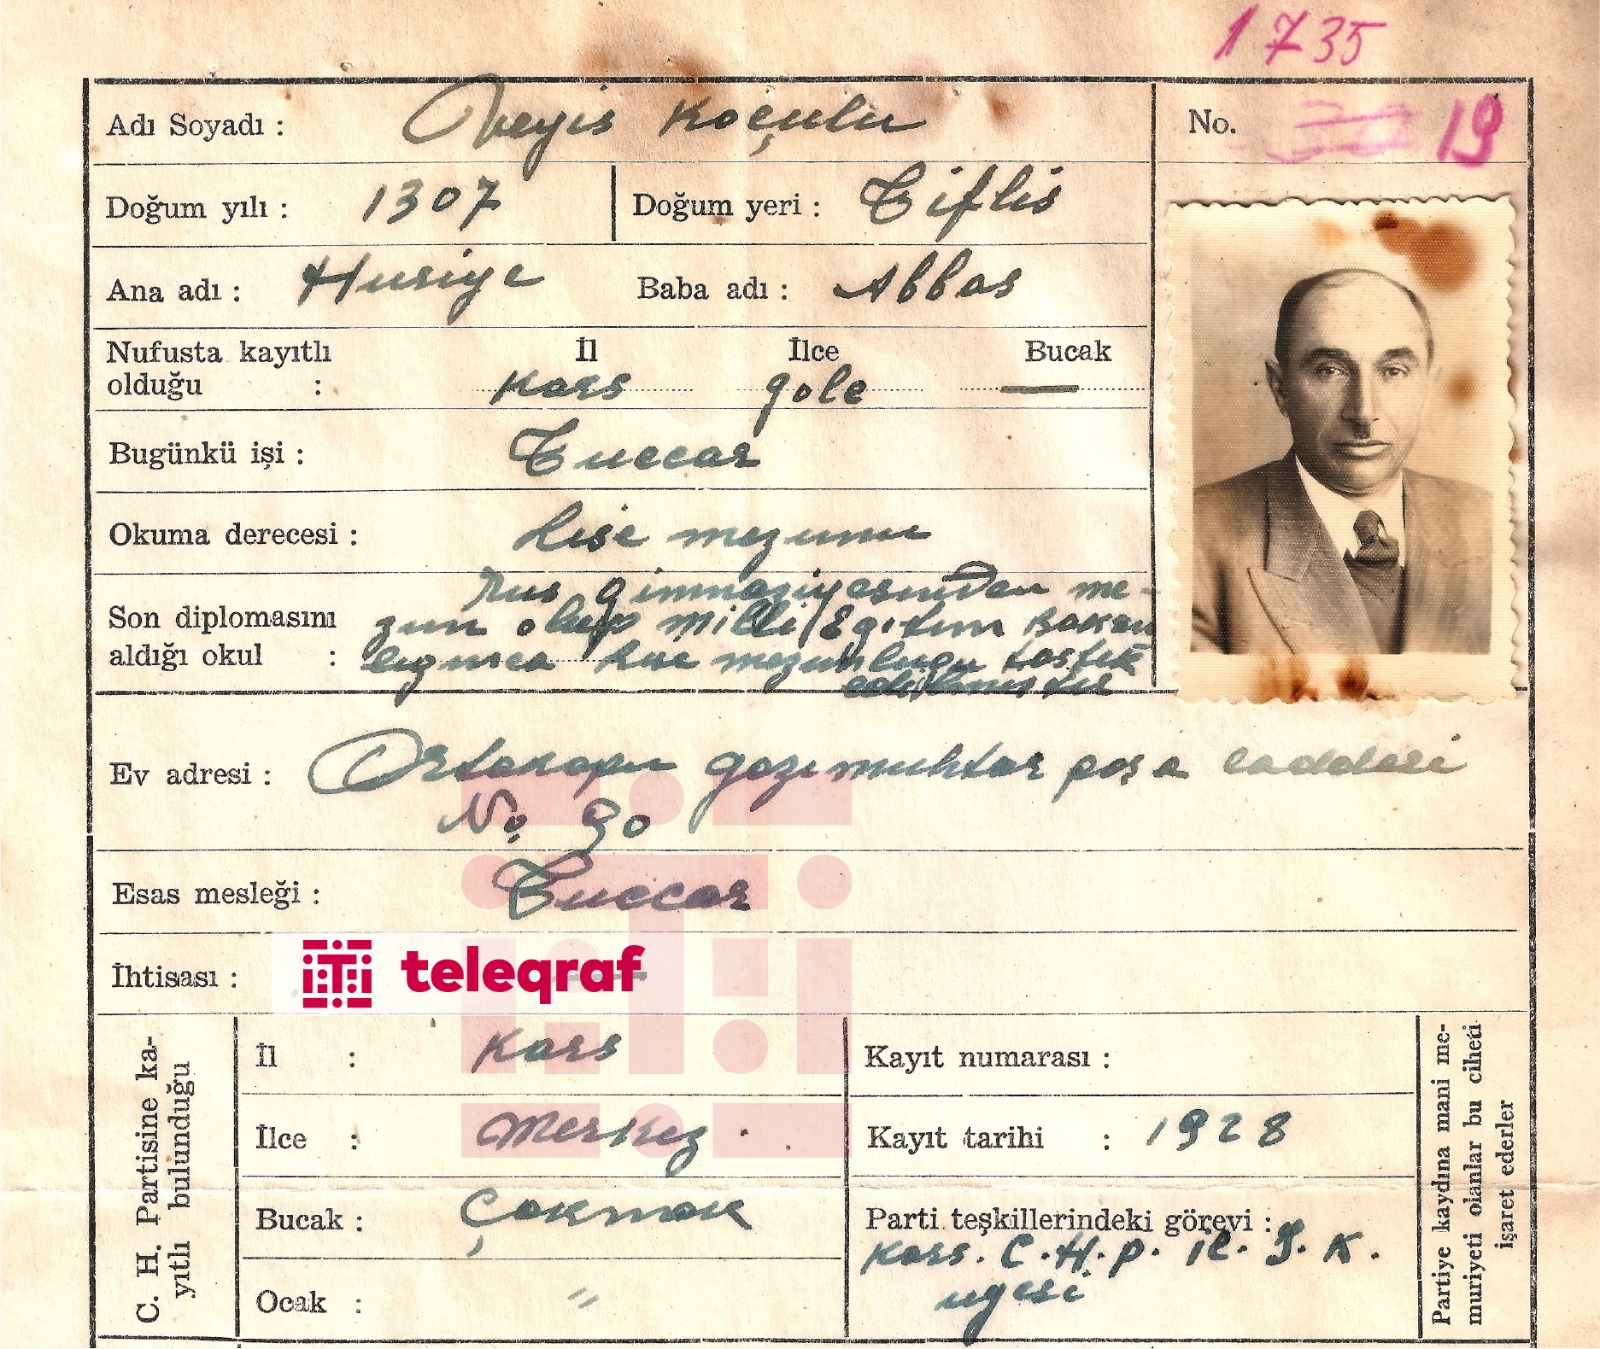 1735
Adı Soyadı : Veyis Koçulu
No. 19
Doğum yılı : 1307 Doğum yeri : Tiflis
Ana adı : Huriye Baba adı : Abbas
Nufusta kayıtlı İl İlce Bucak
olduğu : Kars göle —
Bugünkü işi : Tuccar
Okuma derecesi : Lise mezunu
Rus gimnaziyesinden me-
Son diplomasını zun olup Milli Egitim Bakan
aldığı okul : lığınca lise mezunlugu tastik
edilmiştir
Ev adresi : Ortakapı gazimuhtar paşa caddesi
No. 90
Esas mesleği : Tuccar
İhtisası : —
teleqraf
C. H. Partisine ka-
yıtlı bulunduğu
İl : Kars
Kayıt numarası :
İlce : Merkez
Kayıt tarihi : 1928
Bucak : Çakmak
Parti teşkillerindeki görevi :
Kars. C.H.P. il. İ. K.
uyesi
Ocak : "
Partiye kaydına mani me-
muriyeti olanlar bu ciheti
işaret ederler